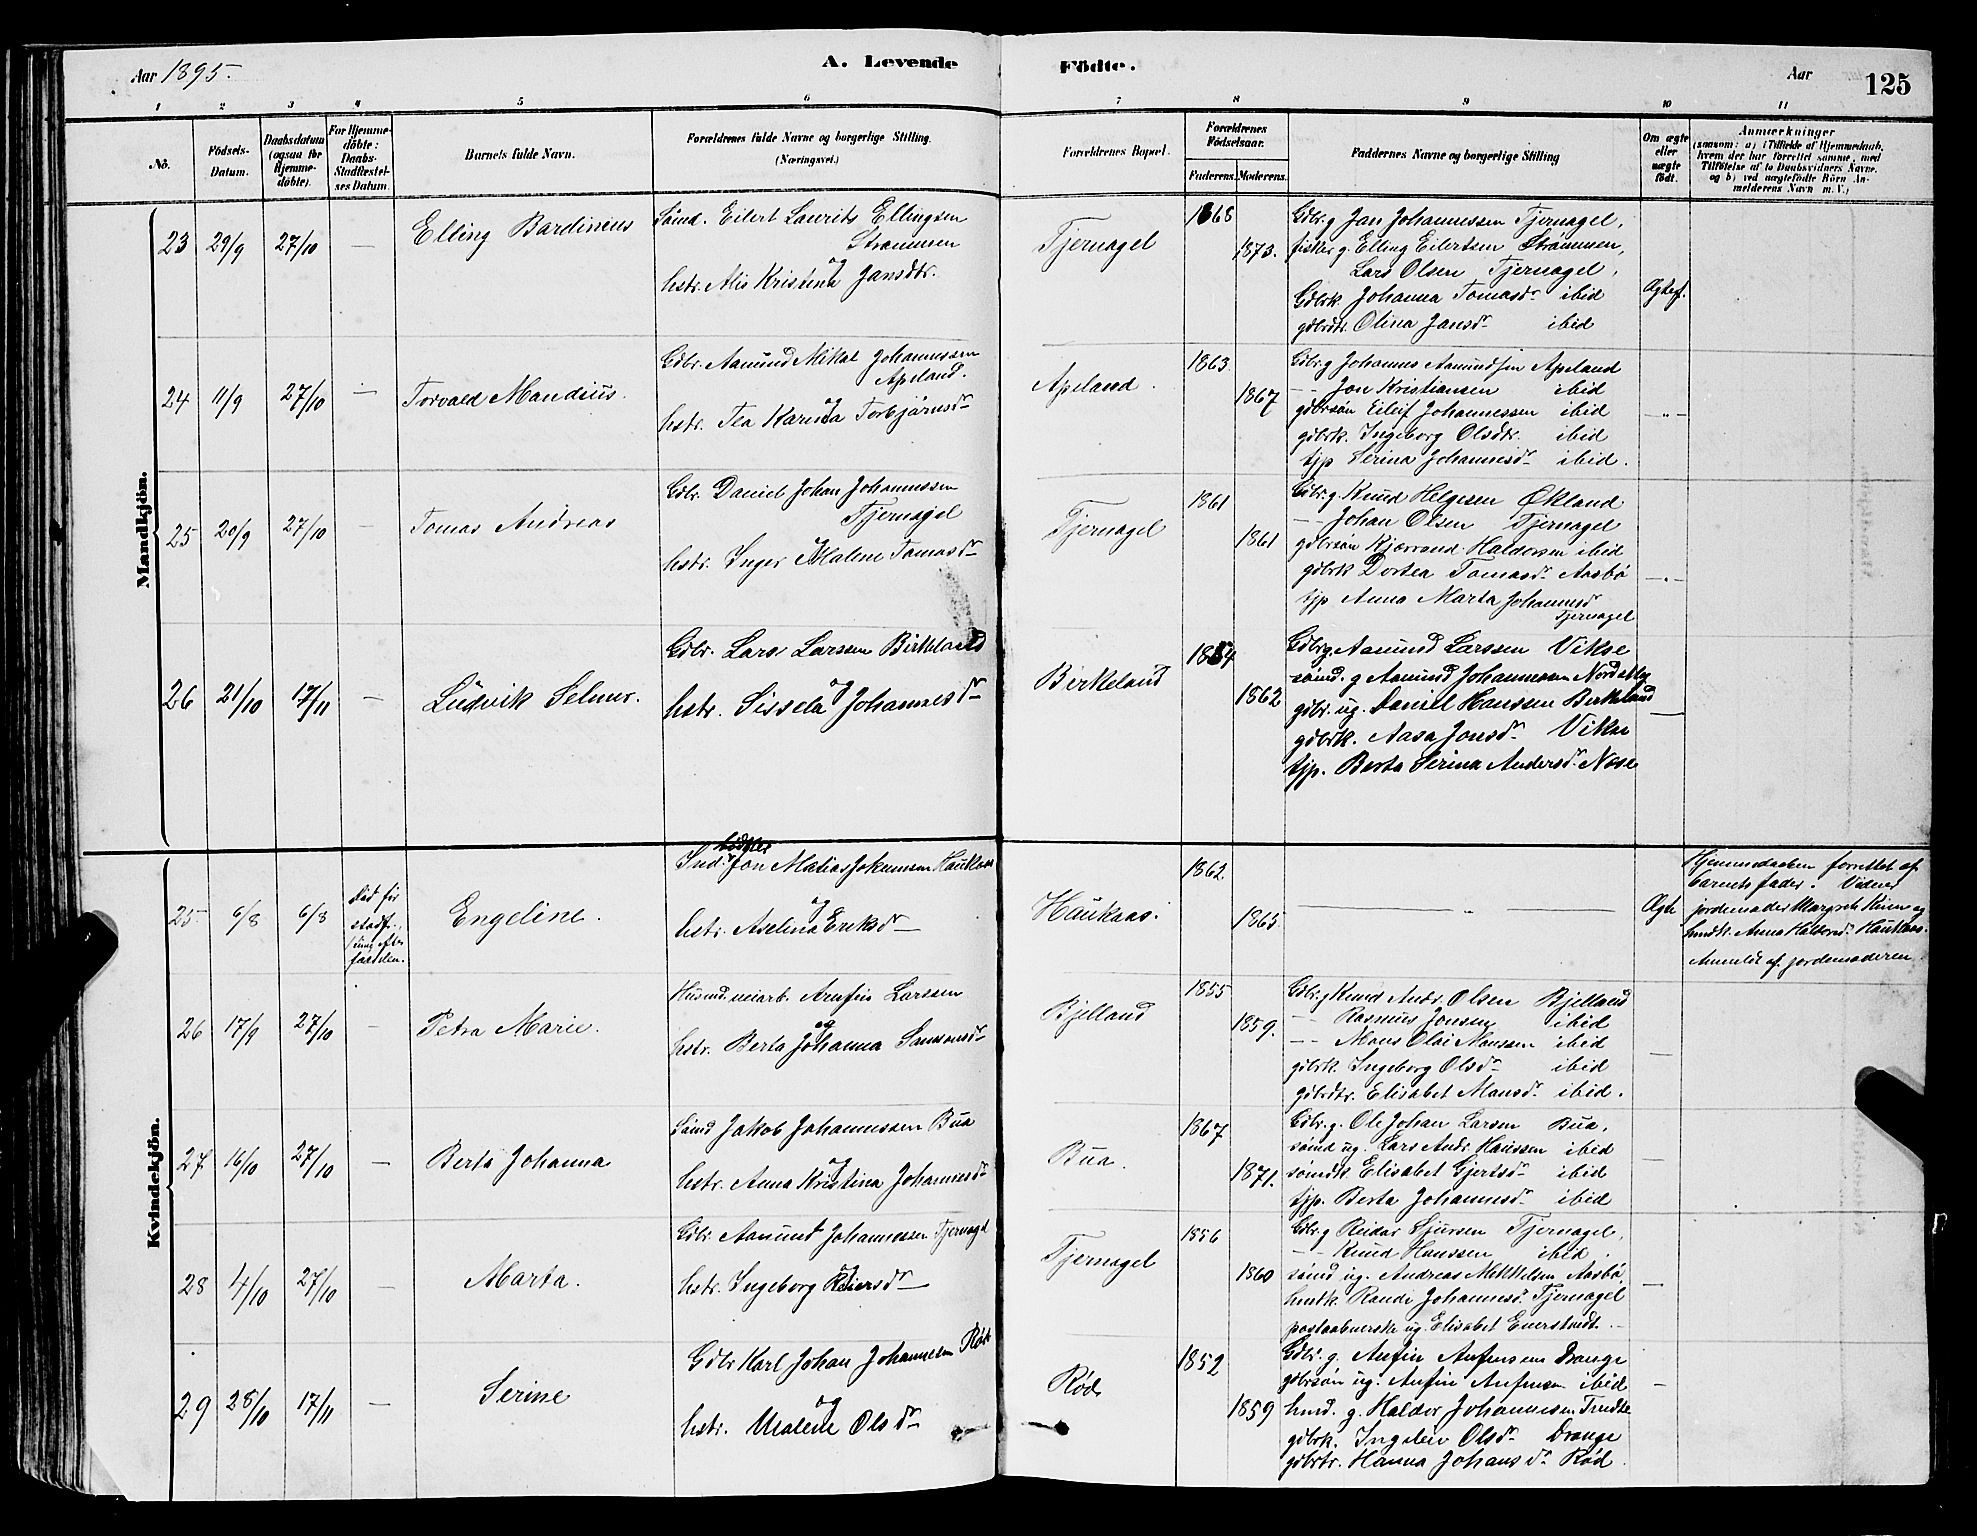 Aar 1895.
A. Levende Födte.
Aar 125
1 2 3 4 5 6 7 8 9 10 11
No.
Födsels-Datum.
Daabsdatum (ogsaa for Hjemme-döbte).
For Hjemme-döbte: Daabs-Stadfæstel-ses Datum.
Barnets fulde Navn.
Forældrenes fulde Navne og borgerlige Stilling. (Næringsvei.)
Forældrenes Bopæl.
Forældrenes Födselsaar.
Faderens. Moderens.
Faddernes Navne og borgerlige Stilling
Om ægte eller uægte födt.
Anmærkninger
(saasom: a) i Tilfælde af Hjemmedaab, hvem der har forrettet samme, med Tilföielse af to Daabsvidners Navne, og b) ved uægtefödte Börn An-melderens Navn m. V.)
Mandkjön.
23 29/9 27/10 — Elling Bardineus
Sömd. Eilert Laurits Ellingsen
Strømmen
og
hstr. Alis Kristina Jansdtr.
Tjernagel
1868
1873.
Gdbr. g Jan Johannessen Tjernagel,
fisker g. Elling Eilertsen Strömmen,
Lars Olsen Tjernagel,
Gdbrk. Johanna Tomasdr ibid
gdbrdtr. Olina Jansdr ibid
Ægtef.
24 11/9 27/10 — Torvald Mandius.
Gdbr. Aamund Mikal Johannessen
Apeland.
og
hstr. Tea Karina Torbjörnsdr
Apeland.
1863
1867
Gdbr. g Johannes Aamundsen Apeland
— Jon Kristiansen ibid
gdbrsön Eileif Johannessen ibid
gdbrk. Ingeborg Olsdtr. ibid
tjp Serina Johannesdr ibid.
— " —
25 20/9 27/10 — Tomas Andreas
Gdbr. Daniel Johan Johannessen
Tjernagel
og
hstr. Inger Malene Tomasdr
Tjernagel
1861
1861
Gdbr. g. Knud Helgesen Økland
— Johan Olsen Tjernagel
gdbrsön Kjærrand Haldorsen ibid
gdbrk Dortea Tomasdr Aasbö
tjp Anna Marta Johannesd
Tjernagel
— " —
26 21/10 17/11 — Ludvik Selmer.
Gdbr. Lars Larssen Birkeland
og
hstr. Sissela Johannesdr
Birkeland
1864
1862
Gdbr. g. Aamund Larssen Vikse
sömd. g Aamund Johannessen
gdbr. ug. Daniel Hanssen Birkeland
gdbrk. Aasa Jonsdr Vikse
tjp. Berta Serina Andersdr Nese
—
Kvindekjön.
25 6/8 6/8
död för
stadf.
Engeline.
Jon Matias Haukaas
og
hstr. Aselina Eriksdr
Haukaas.
1862
1865
— " —
Ægte
Hjemmedaaben forrettet af
barnets fader. Vidner
jordemoder Margrete og
hmdk. Anna Haldorsdr Haukaas.
Anmeldt af jordemoderen.
26 17/9 27/10 — Petra Marie.
Husmd. Arnfin Larssen
og
hstr. Berta Johanna Samsonsdr
Bjelland
1855
1859.
Gdbr. g Knud Andr. Olsen Bjelland
— Rasmus Jonsen ibid
— Mons Olai Monssen ibid
gdbrk. Ingeborg Olsdr ibid
gdbrdtr. Elisabet Monsdr ibid.
—
27 16/10 27/10 — Berta Johanna
Sömd Jakob Johannessen Bua
og
hstr. Anna Kristina Johannesdr
Bua.
1867
1871.
Gdbr. g. Ole Johan Larsen Bua,
sömd ug. Lars Andr. Hanssen ibid
sömdk. Elisabet Gjertsdr ibid
tjp. Berta Johannesdr ibid
—
28 4/10 27/10 — Marta.
Gdbr. Aamund Johannessen Tjernagel
og
hstr. Ingeborg Reiersdr
Tjernagel
1856
1860
Gdbr. g Reidar Sjursen Tjernagel,
— Knud Hanssen ibid.
sömd ug. Andreas Mikkelsen Aasbö,
hmdk. Randi Johannesdr Tjernagel
postaabnerske ug. Elisabet
—
29 28/10 17/11 — Serine
Gdbr Karl Johan Johannesen Röd
og
hstr. Malene Olsdr
Röd
1852
1859
Gdbr. g. Anfin Anfinsen Drange
gdbrsön ug. Anfin Anfinsen ibid
husd. g. Haldor Johannesen
gdbrk. Ingelev Olsdr Drange
gdbrtr. Hanna Johansdr Röd.
—